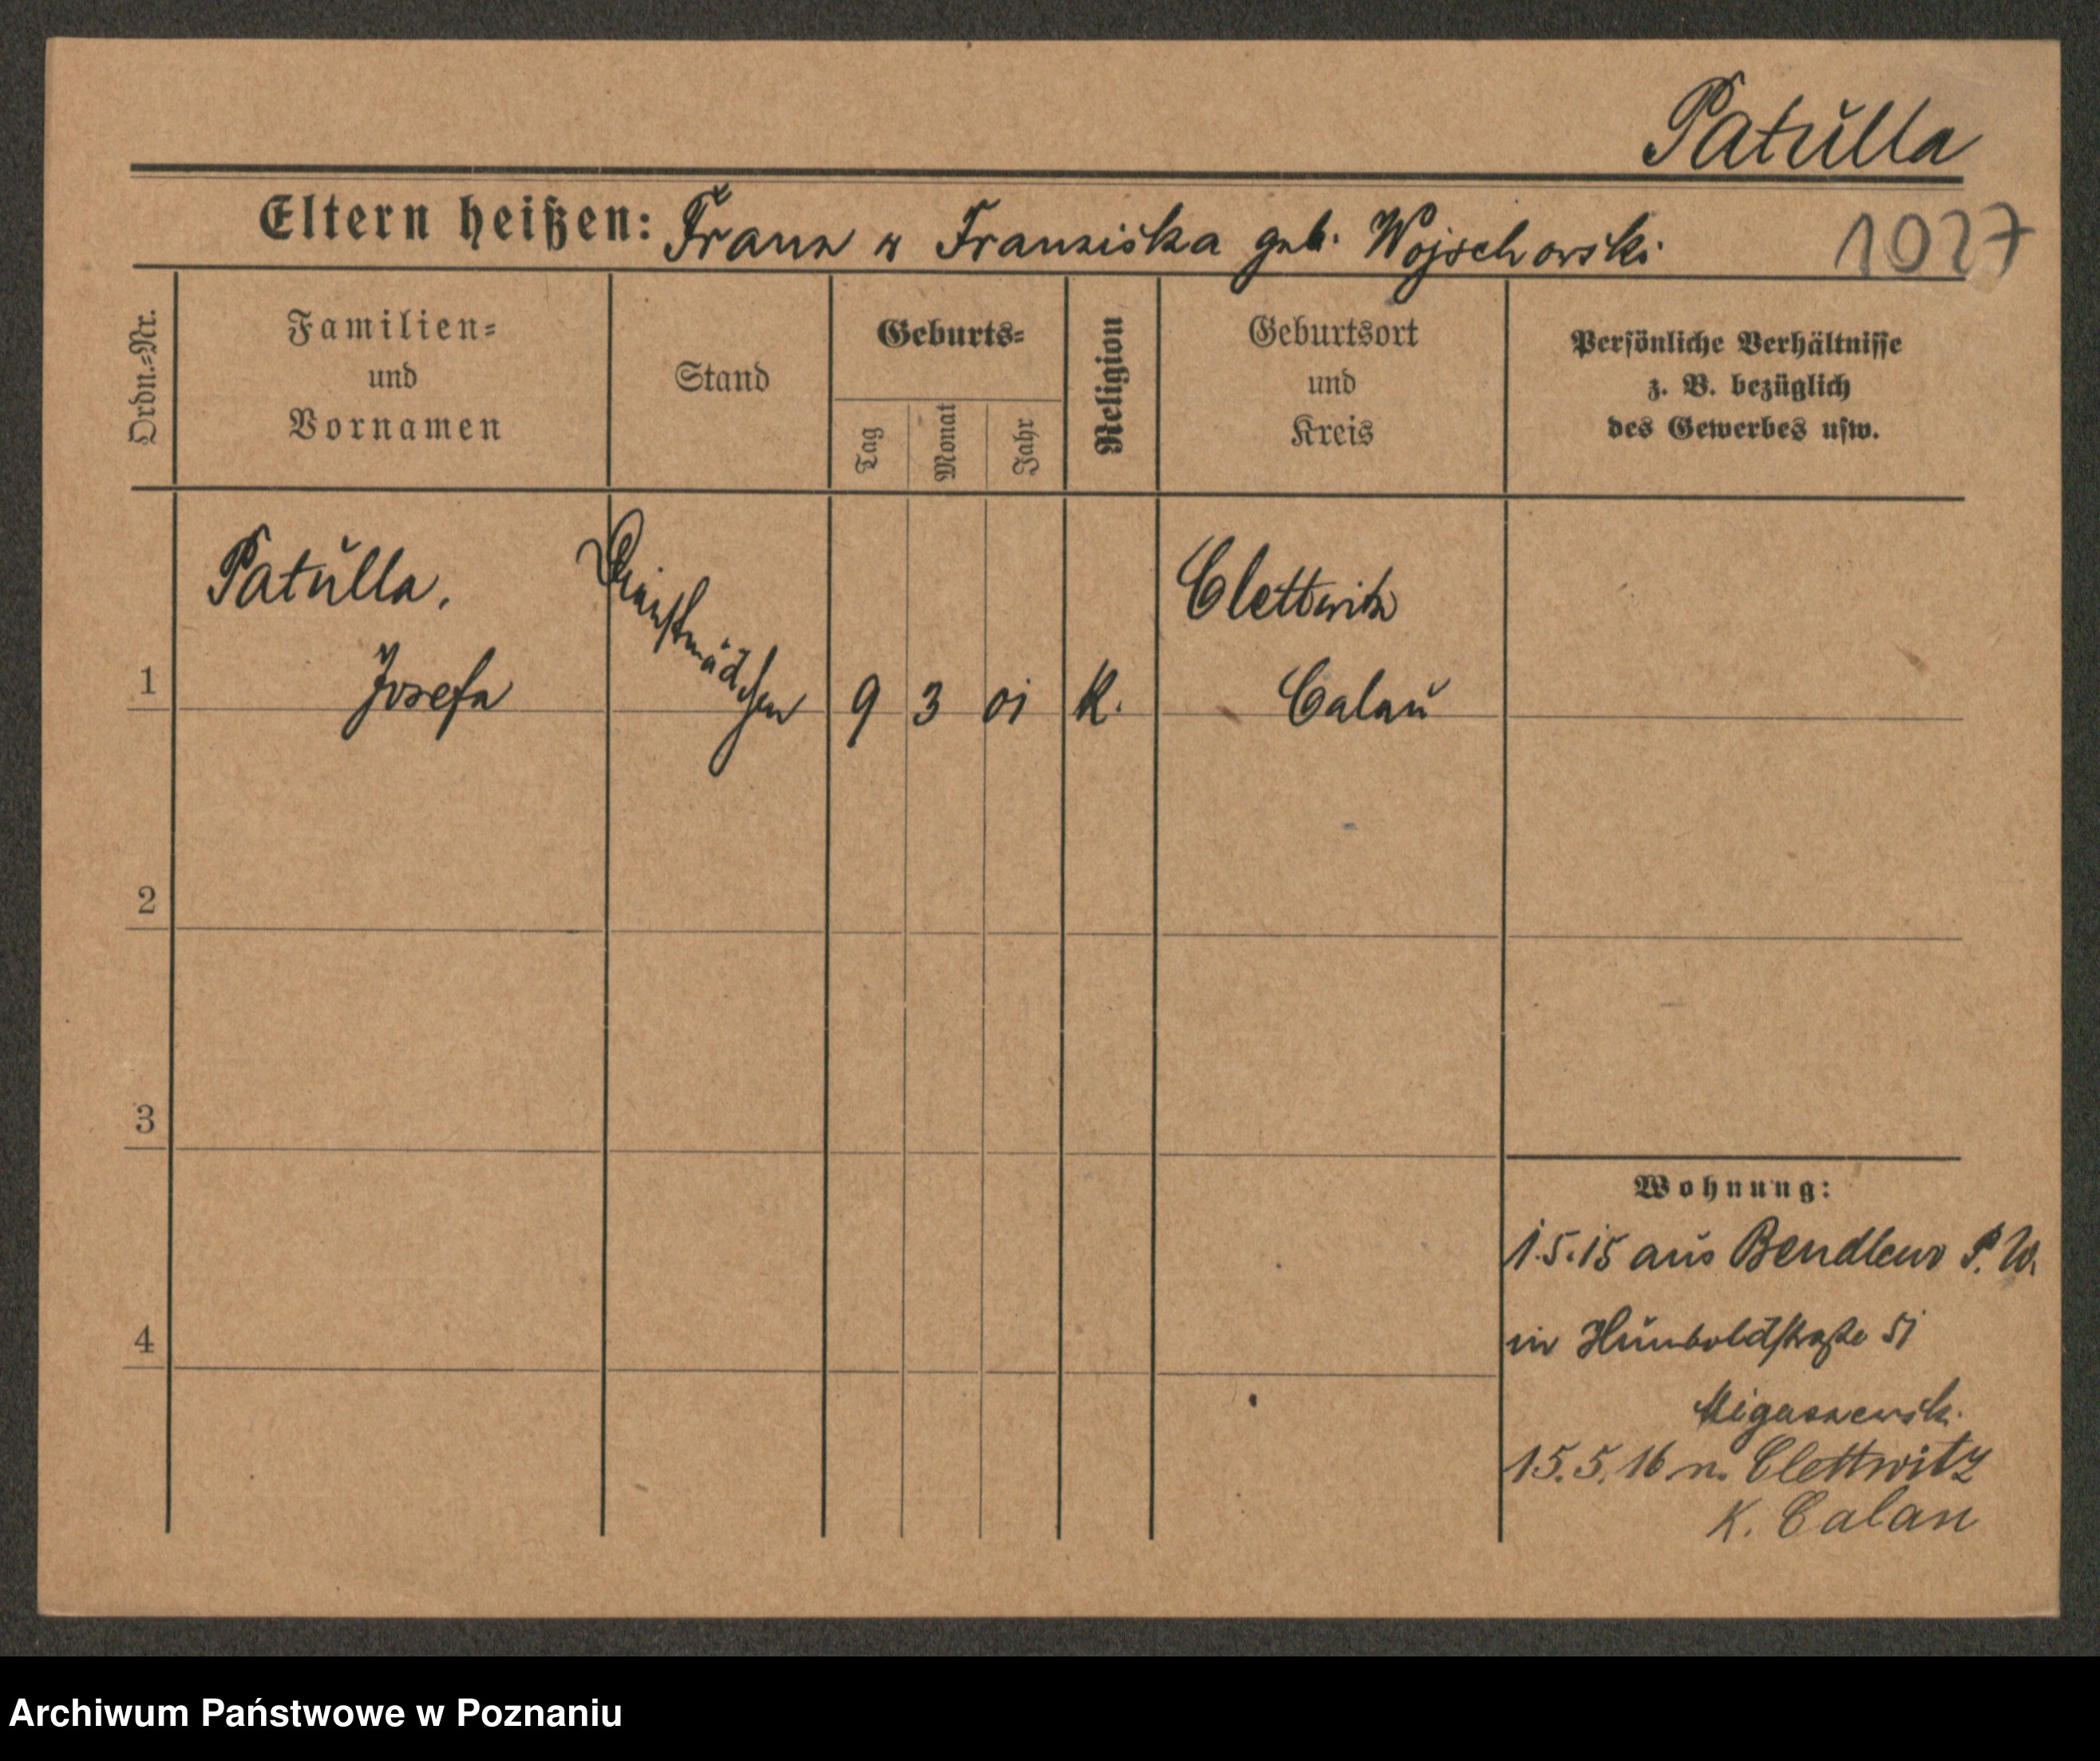 Patulla
Eltern heißen: Franz u Franziska geb. Wojschowski
1027
Ordn.=Nr.
Familien=
und
Vornamen
Stand
Geburts=
Tag
Monat
Jahr
Religion
Geburtsort
und
Kreis
Persönliche Verhältnisse
z. B. bezüglich
des Gewerbes usw.
1
Patulla,
Josefa
Dienstmädchen
9 3 01
K.
Clettwitz
Calau
2
3
4
Wohnung:
1.5.15 aus Bendlewo P. W.
in Humboldstraße 51
Migaszewsk.
15.5.16 n. Clettwitz
K. Calau
Archiwum Państwowe w Poznaniu